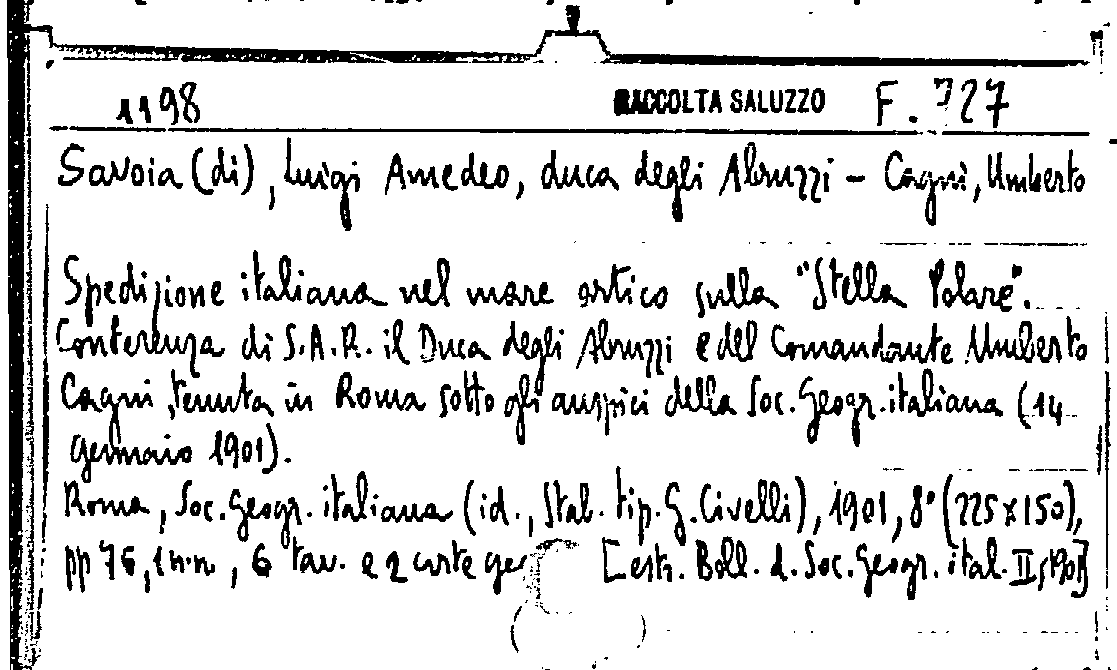 1198 RACCOLTA SALUZZO F. 727
Savoia (di), Luigi Amedeo, duca degli Abruzzi – Cagni, Umberto
Spedizione italiana nel mare artico sulla "Stella Polare".
Conferenza di S.A.R. il Duca degli Abruzzi e del Comandante Umberto
Cagni, tenuta in Roma sotto gli auspici della Soc. Geogr. italiana (14
gennaio 1901).
Roma, Soc. Geogr. italiana (id., Stab. tip. G. Civelli), 1901, 8° (225x150),
pp 76, 1 n.n., 6 tav. e 2 carte [estr. Boll. d. Soc. Geogr. ital. II, 1901]